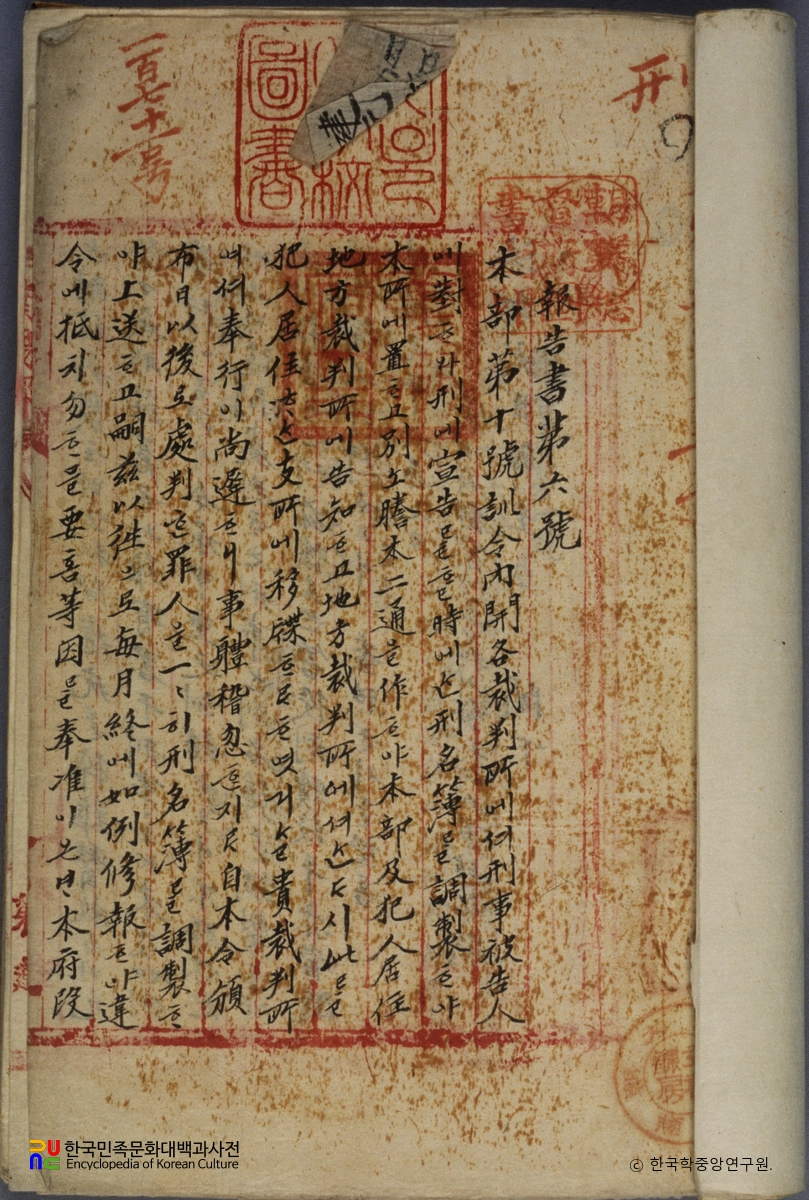 報告書第六號
本部第十號訓令內開各裁判所에셔刑事被告人
에對ᄒᆞ야刑에宣告를ᄒᆞᆯ時에ᄂᆞᆫ刑名簿를調製ᄒᆞ야
本所에置ᄒᆞ고別노謄本二通을作ᄒᆞ야本部及犯人居住
地方裁判所에告知ᄒᆞ고地方裁判所에셔ᄂᆞᆫ다시此를
犯人居住ᄒᆞᄂᆞᆫ支所에移牒ᄒᆞ라ᄒᆞ엿거ᄂᆞᆯ貴裁判所
에셔奉行이尙遲ᄒᆞ니事體稽忽ᄒᆞᆫ지라自本令頒
布日以後로處判ᄒᆞᆫ罪人을一一히刑名簿를調製ᄒᆞ
야上送ᄒᆞ고嗣玆以往으로每月終에如例修報ᄒᆞ야違
令에抵치勿ᄒᆞᆷ을要喜等因을奉准이온ᄇᆞ本府段
一百七十一号
刑
圖書
한국민족문화대백과사전
Encyclopedia of Korean Culture
© 한국학중앙연구원.